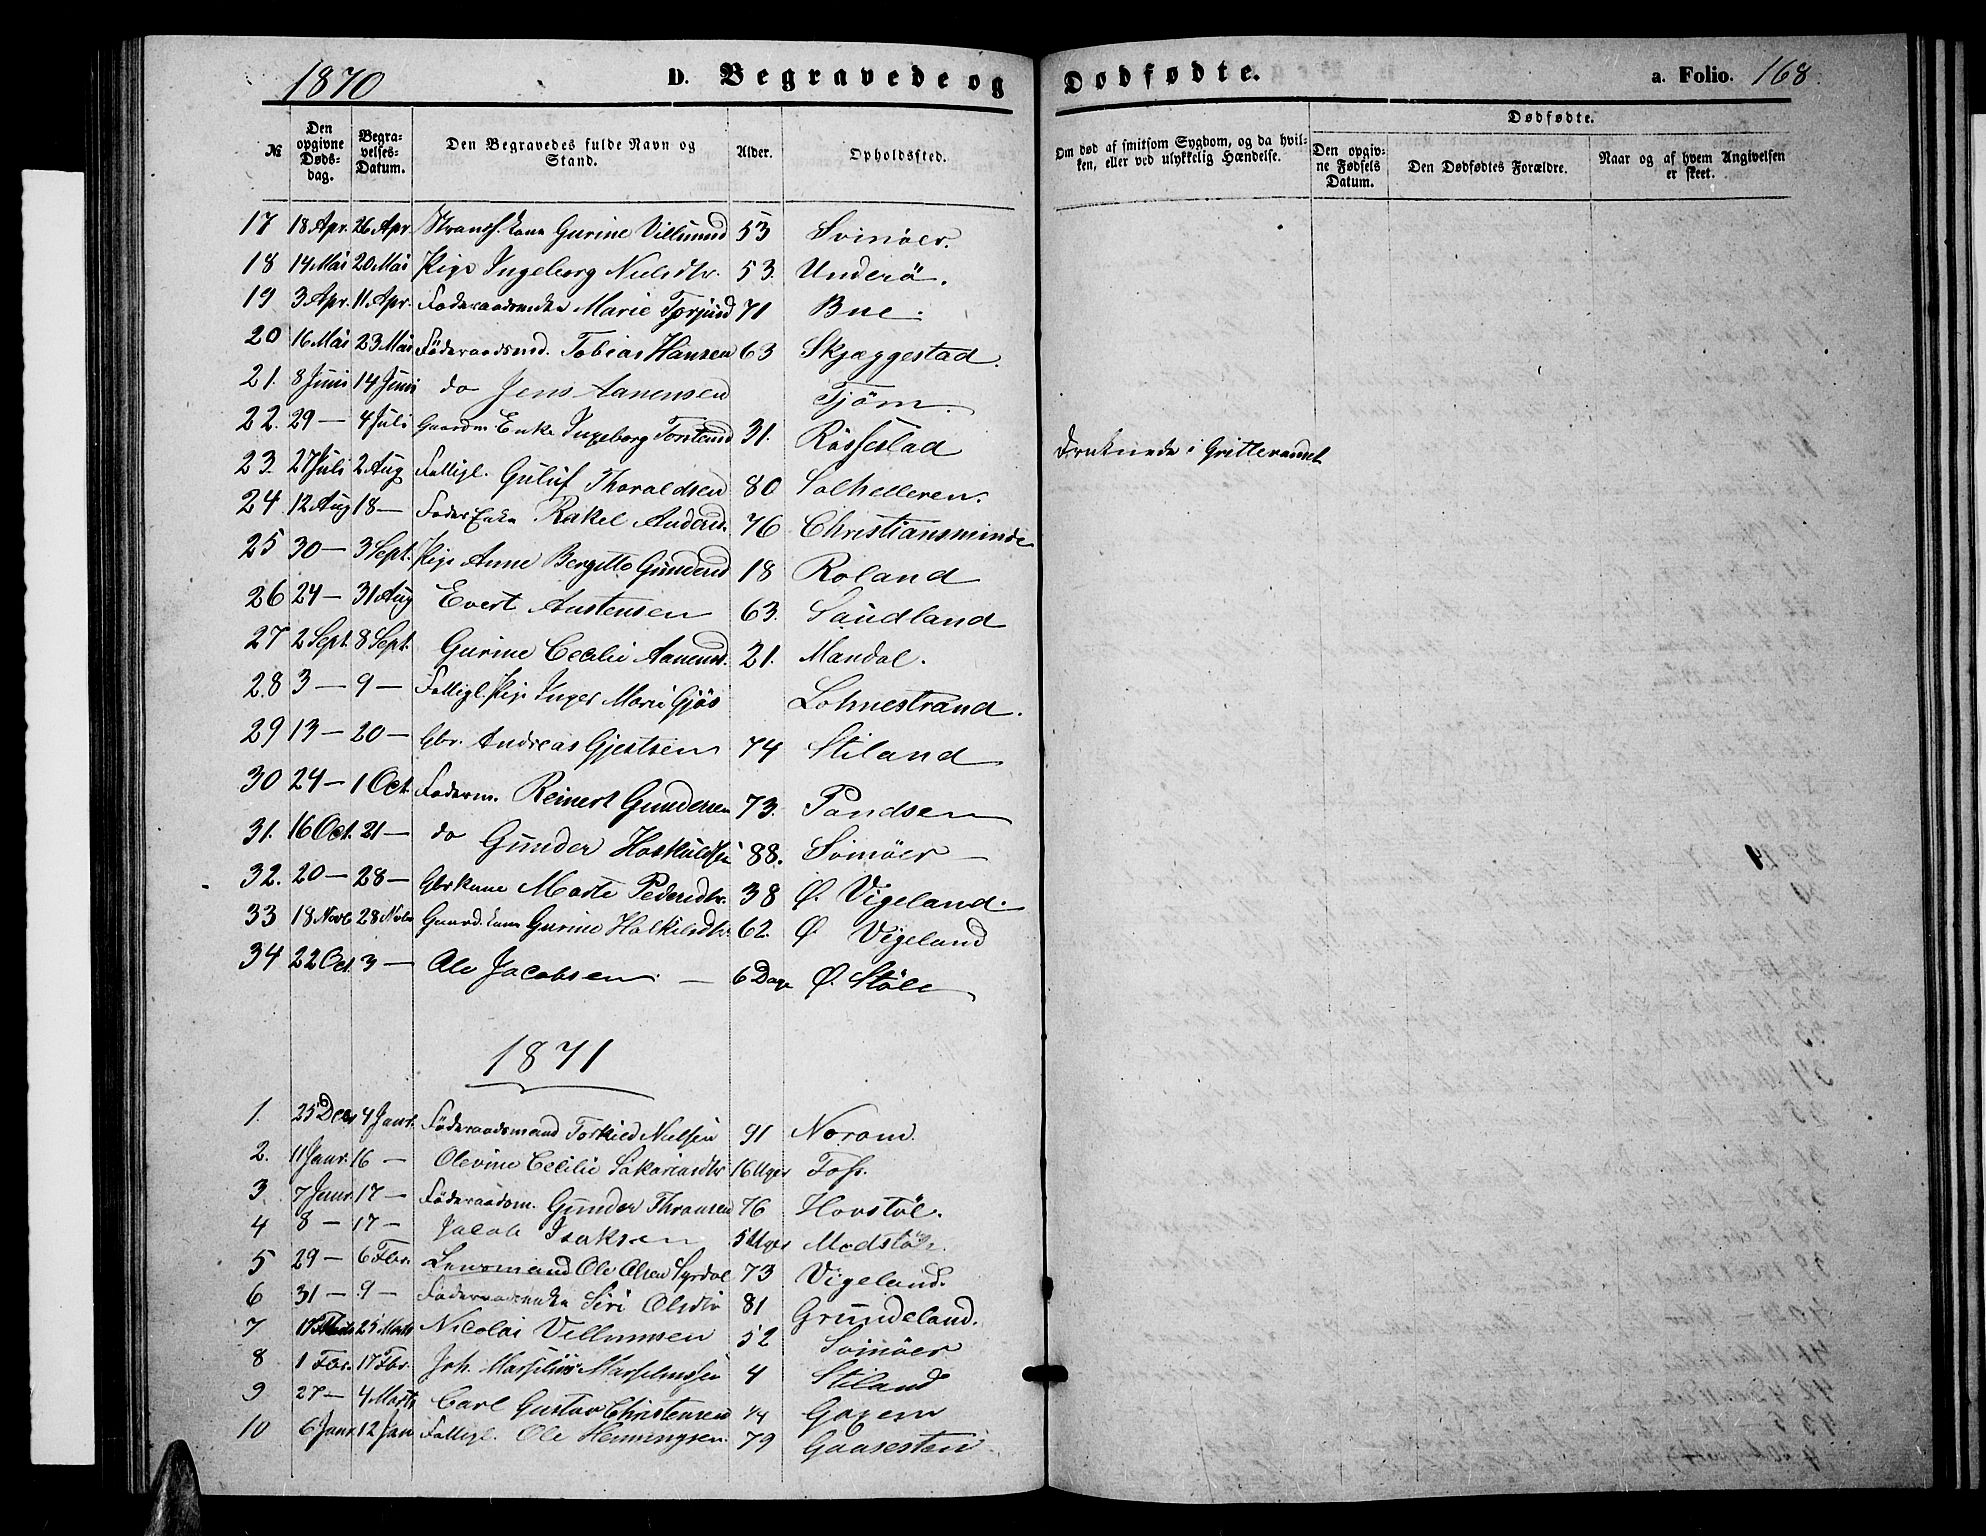 1870
D. Begravede og Dødfødte.
a. Folio. 168.
№ Den opgivne Døds-dag. Begra-velses-Datum. Den Begravedes fulde Navn og Stand. Alder. Opholdssted. Om død af smitsom Sygdom, og da hvil-ken, eller ved ulykkelig Hændelse. Dødfødte.
Den opgiv-ne Fødsels Datum. Den Dødfødtes Forældre. Naar og af hvem Angivelsen er skeet.
17 18 Apr. 26 Apr. Gurine Villumsd 53 Svinöer.
18 14 Mai 20 Mai Pige Ingeborg Nielsdtr. 53. Underö.
19 3 Apr. 11 Apr. Föderaadsenke Marie Torjusd 71 Bue.
20 16 Mai 23 Mai Föderaadsmd. Tobias Hansen 63 Skjæggestad.
21. 8 Juni 14 Juni do Jens Aanensen Tjöm.
22. 29 — 4 Juli Gaardm Enke Ingeborg Torstensd 31. Rössestad
23. 27 Juli 2 Aug Fattigl. Guluf Thoraldsen 80 Solhelleren. druknede i
24. 12 Aug 18 — Foder Enke Rakel Andersd. 76 Christiansminde
25 30 — 3 Sept. Pige Anne Bergitte Gundersd 18 Roland
26 24 — 31 Aug Evert Austensen 63. Saudland
27 2 Sept. 8 Sept. Gurine Cecilie Aanensd. 21. Mandal.
28 3 — 9 — Fattigl. Pige Inger Marie Gjös Lohnestrand.
29 13 — 20 — Gbr. Andreas Gjertsen 74 Stiland
30 24 — 1 Oct. Föderm. Reinert Gundersen 73. Pandsen
31. 16 Oct. 21 — do Gunder Hoskuldsen 88. Svinöer —
32. 20 — 28 — Gbrkone Marte Pedersdtr. 38 Ø. Vigeland.
33 18 Novb 28 Novbr Gaard. kone Gurine Halkildtr. 62. Ø Vigeland
34 22 Oct. 3 — Ole Jacobsen — 6 Dage Ø. Stöle
1871
1. 25 Decr 4 Janr. Föderaadsmand Torkild Nielsen 91 Norom.
2. 11 Janr. 16 — Olevine Cecilie Sakariasdtr 16 Uger Foss.
3. 7 Janr 17 — Föderaadsm. Gunder Thronsen 76 Hovstöl.
4 8 — 17 — Jacob Isaksen 5 Uger Modstöl.
5 29 — 6 Fbr. Lensmand Ole Olsen Syrdal 73 Vigeland.
6 31 — 9 — Föderaadsenke Siri Olsdtr 81 Grundeland.
7 25 Marts Nicolai Villumsen 52 Svinöer
8 1 Fbr. 17 Fbr. Joh. Marselius Marselinssen 4 Stiland
9 27 — 4 Marts Carl Gustav Christensen 1/4 Goxem
10 6 Janr 12 Jan Fattigl. Ole Henningsen. 79 Gaasesten